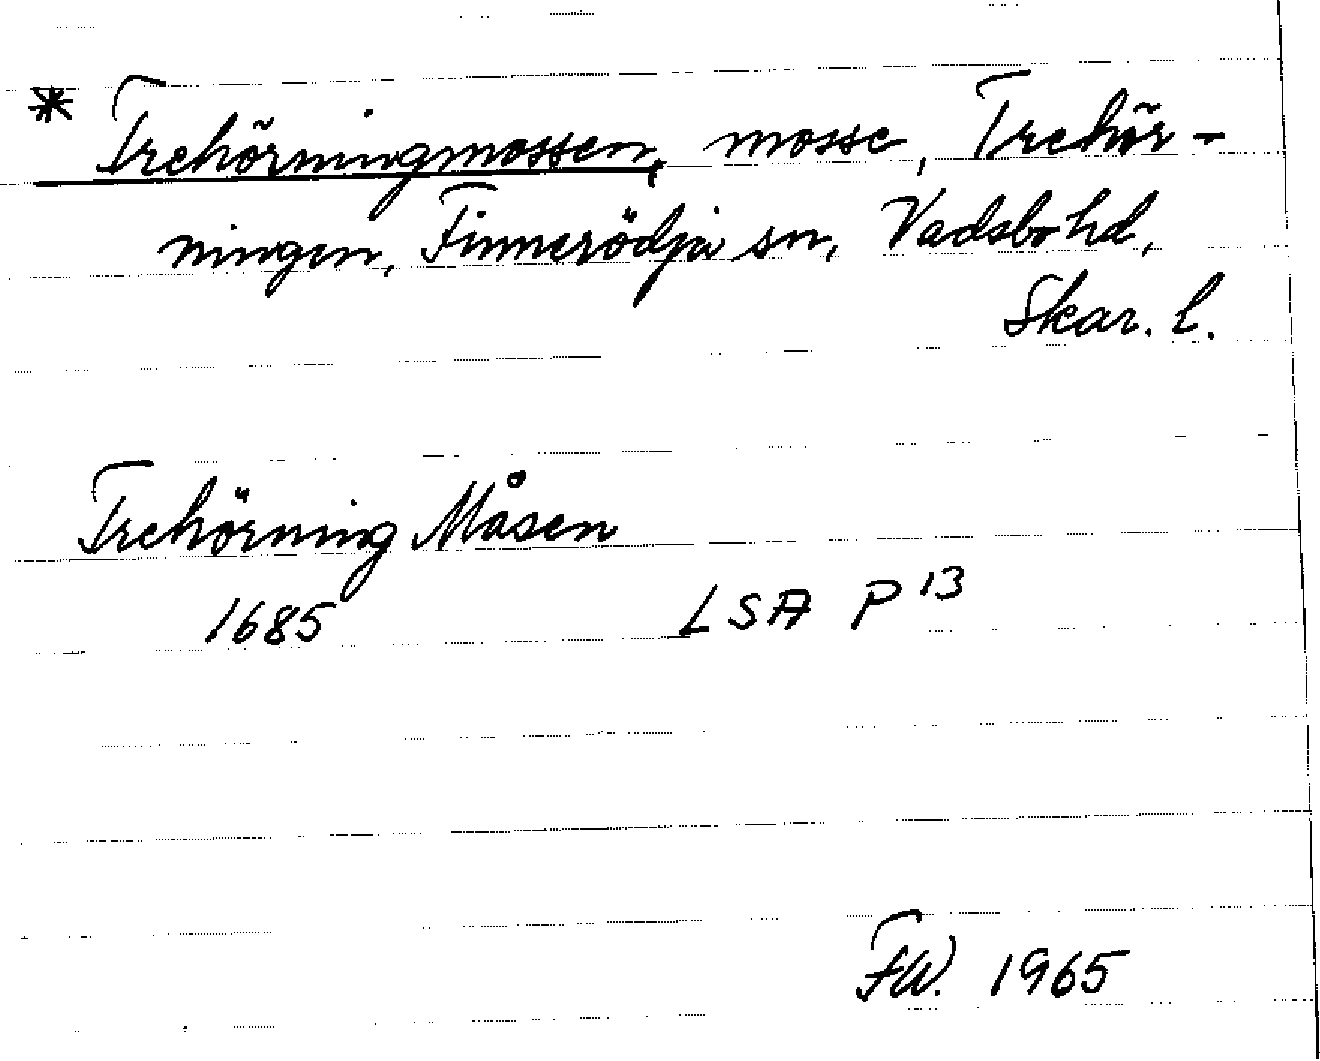 * Trehörningmossen, mosse, Trehör-
ningen, Finnerödja sn, Vadsbo hd,
Skar. l.
Trehörning Måsen
1685 LSA P 13
FW. 1965